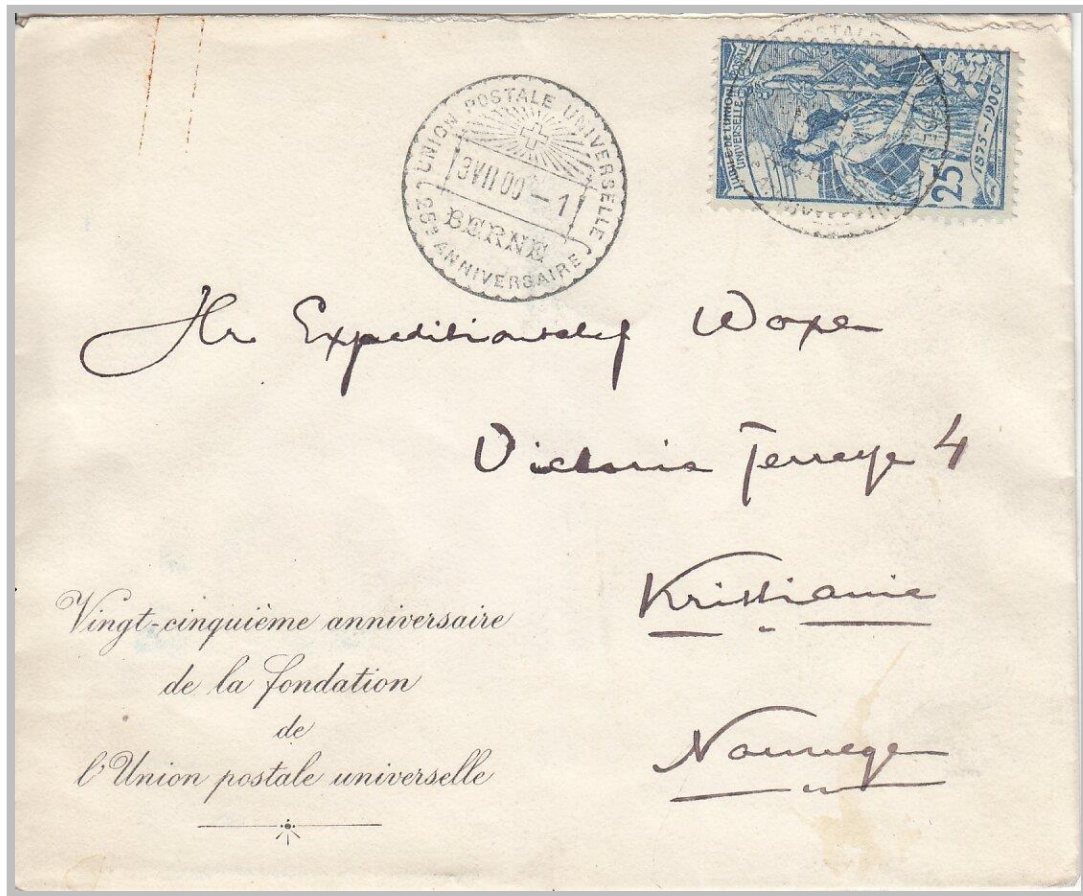 UNION POSTALE UNIVERSELLE
3 VII 00 – 1
BERNE
25e ANNIVERSAIRE
JUBILÉ DE L'UNION POSTALE
UNIVERSELLE
1875–1900
25
Hr Expeditionschef
Victoria Terrasse 4
Kristiania
Norwege
Vingt-cinquième anniversaire
de la fondation
de
l'Union postale universelle